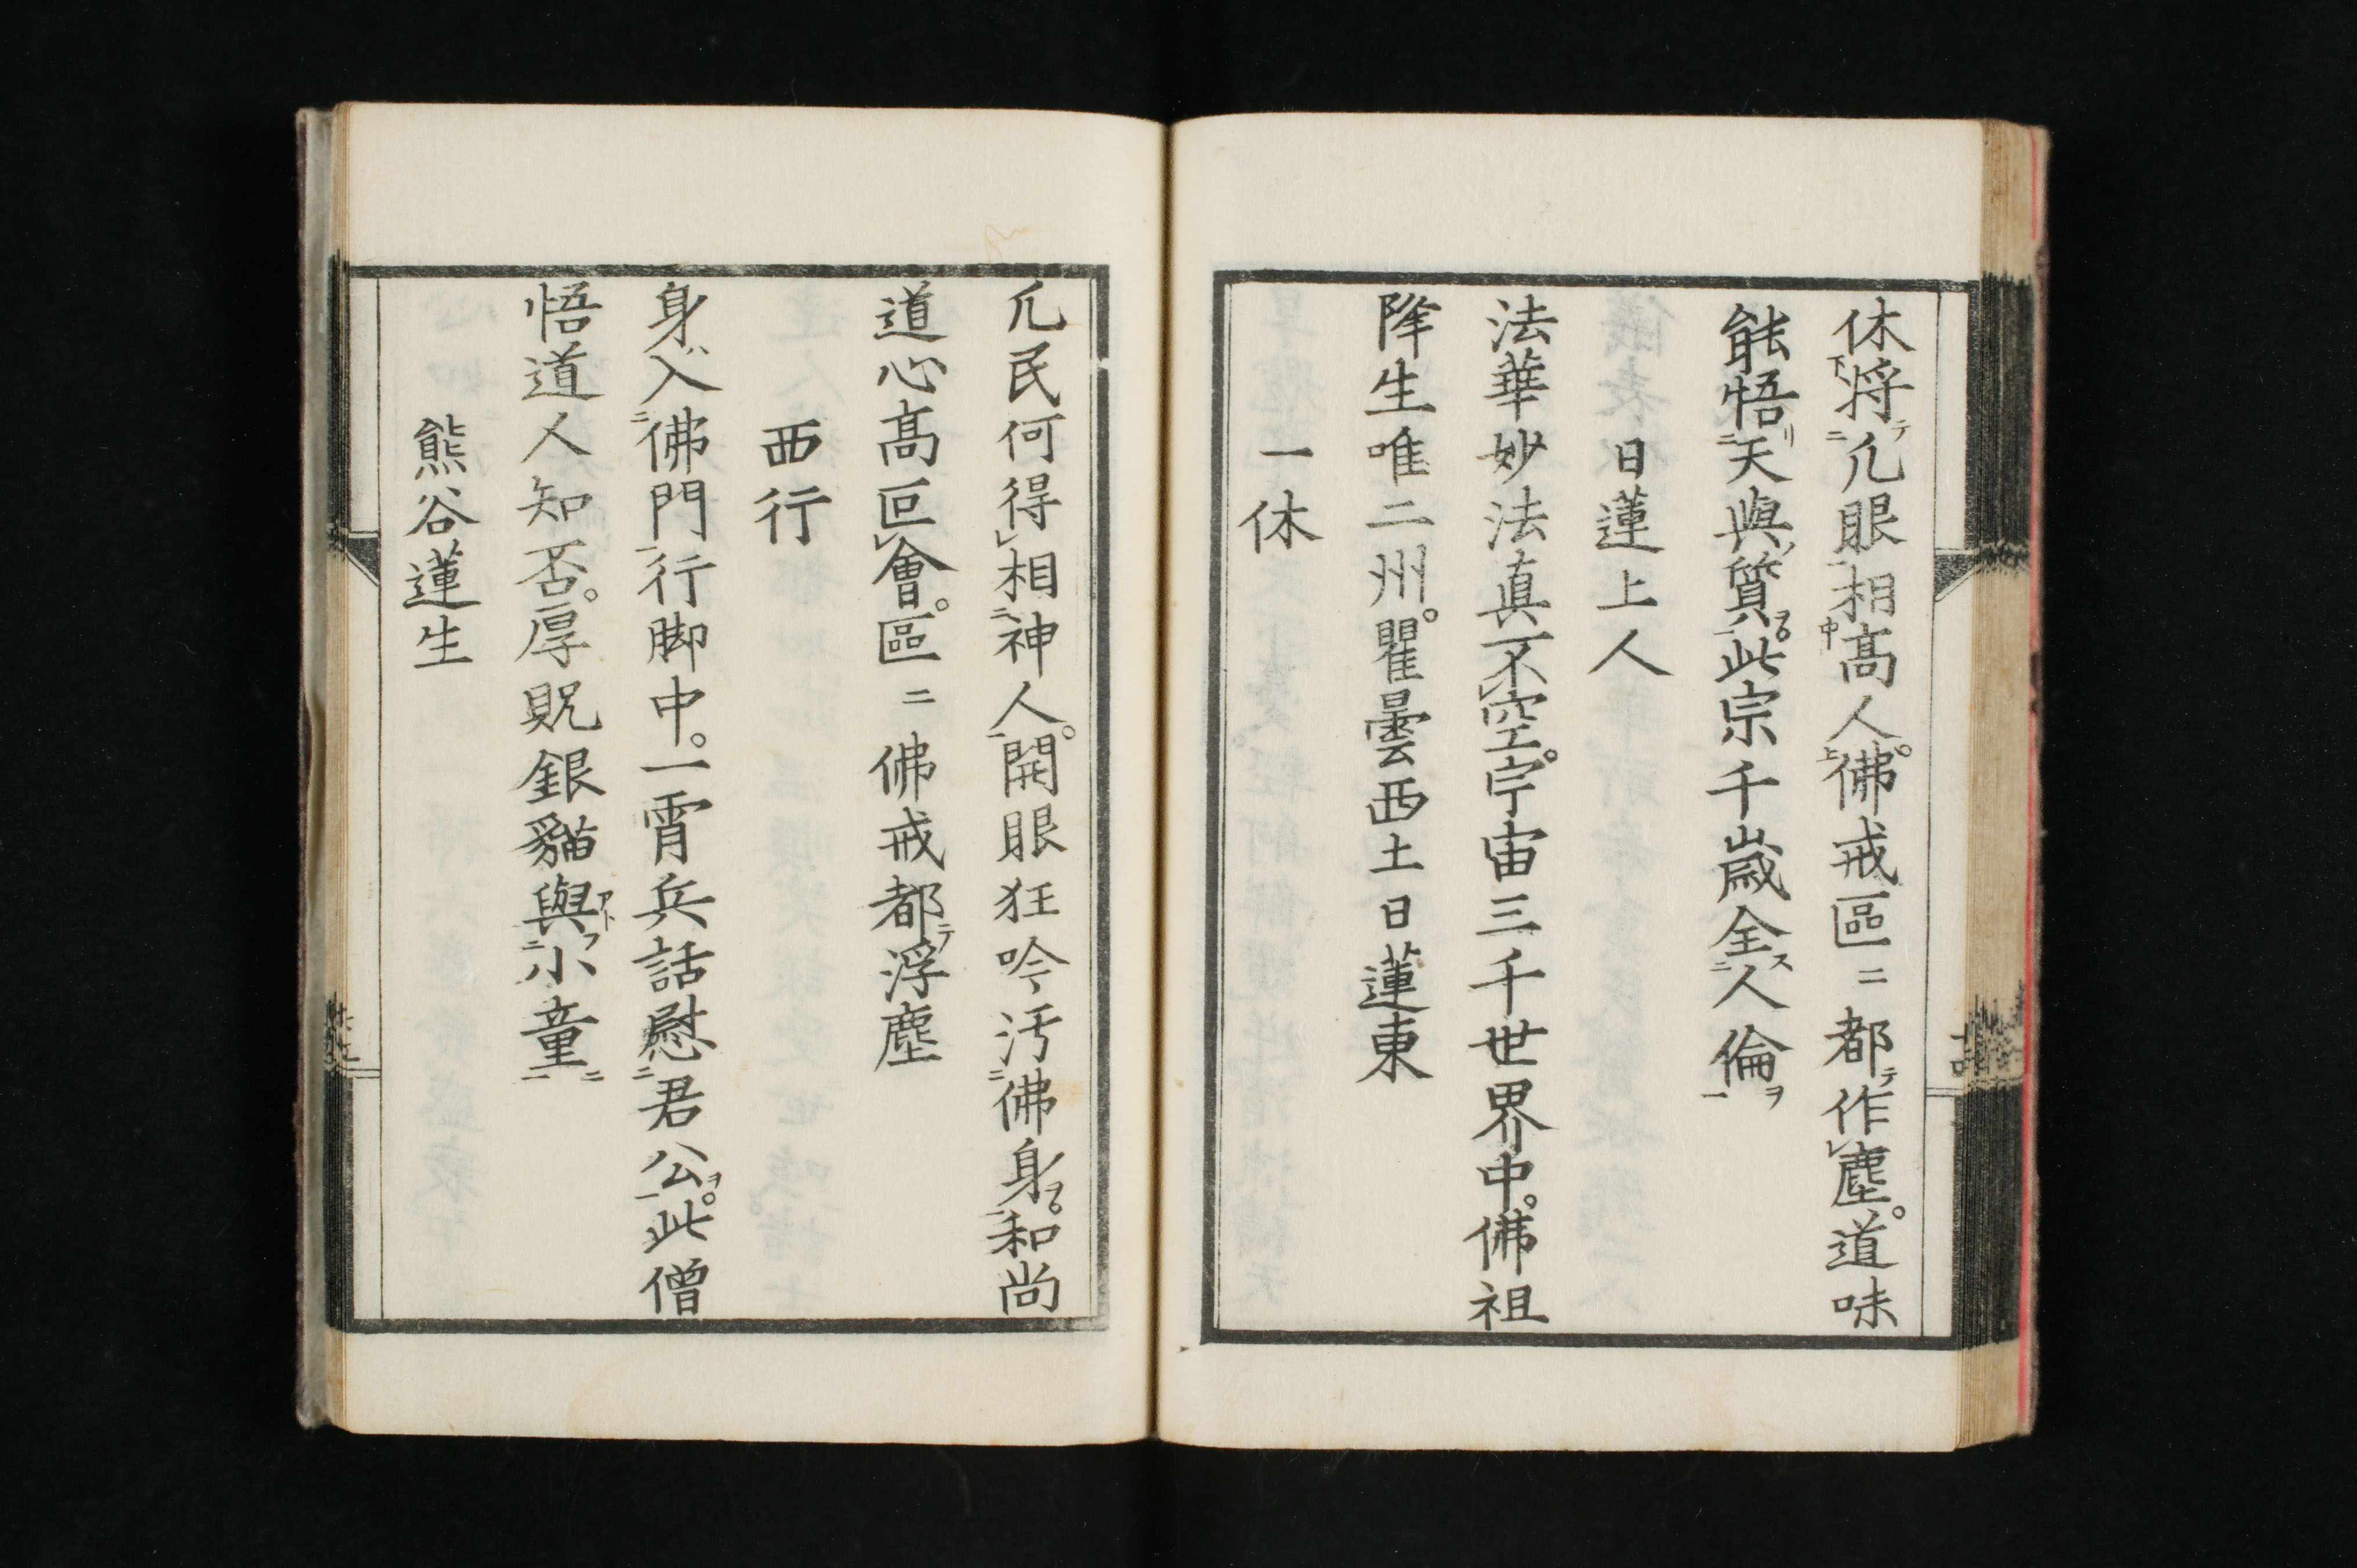 休将凢眼相高人佛戒區〻都作塵道味
能悟天與質此宗千歳全人倫
日蓮上人
法華妙法真不空宇宙三千世界中佛祖
降生唯二州瞿曇西土日蓮東
一休
凢民何得相神人開眼狂吟汚佛身和尚
道心高叵會區〻佛戒都浮塵
西行
身入佛門行脚中一宵兵話慰君公此僧
悟道人知否厚貺銀貓與小童
熊谷蓮生